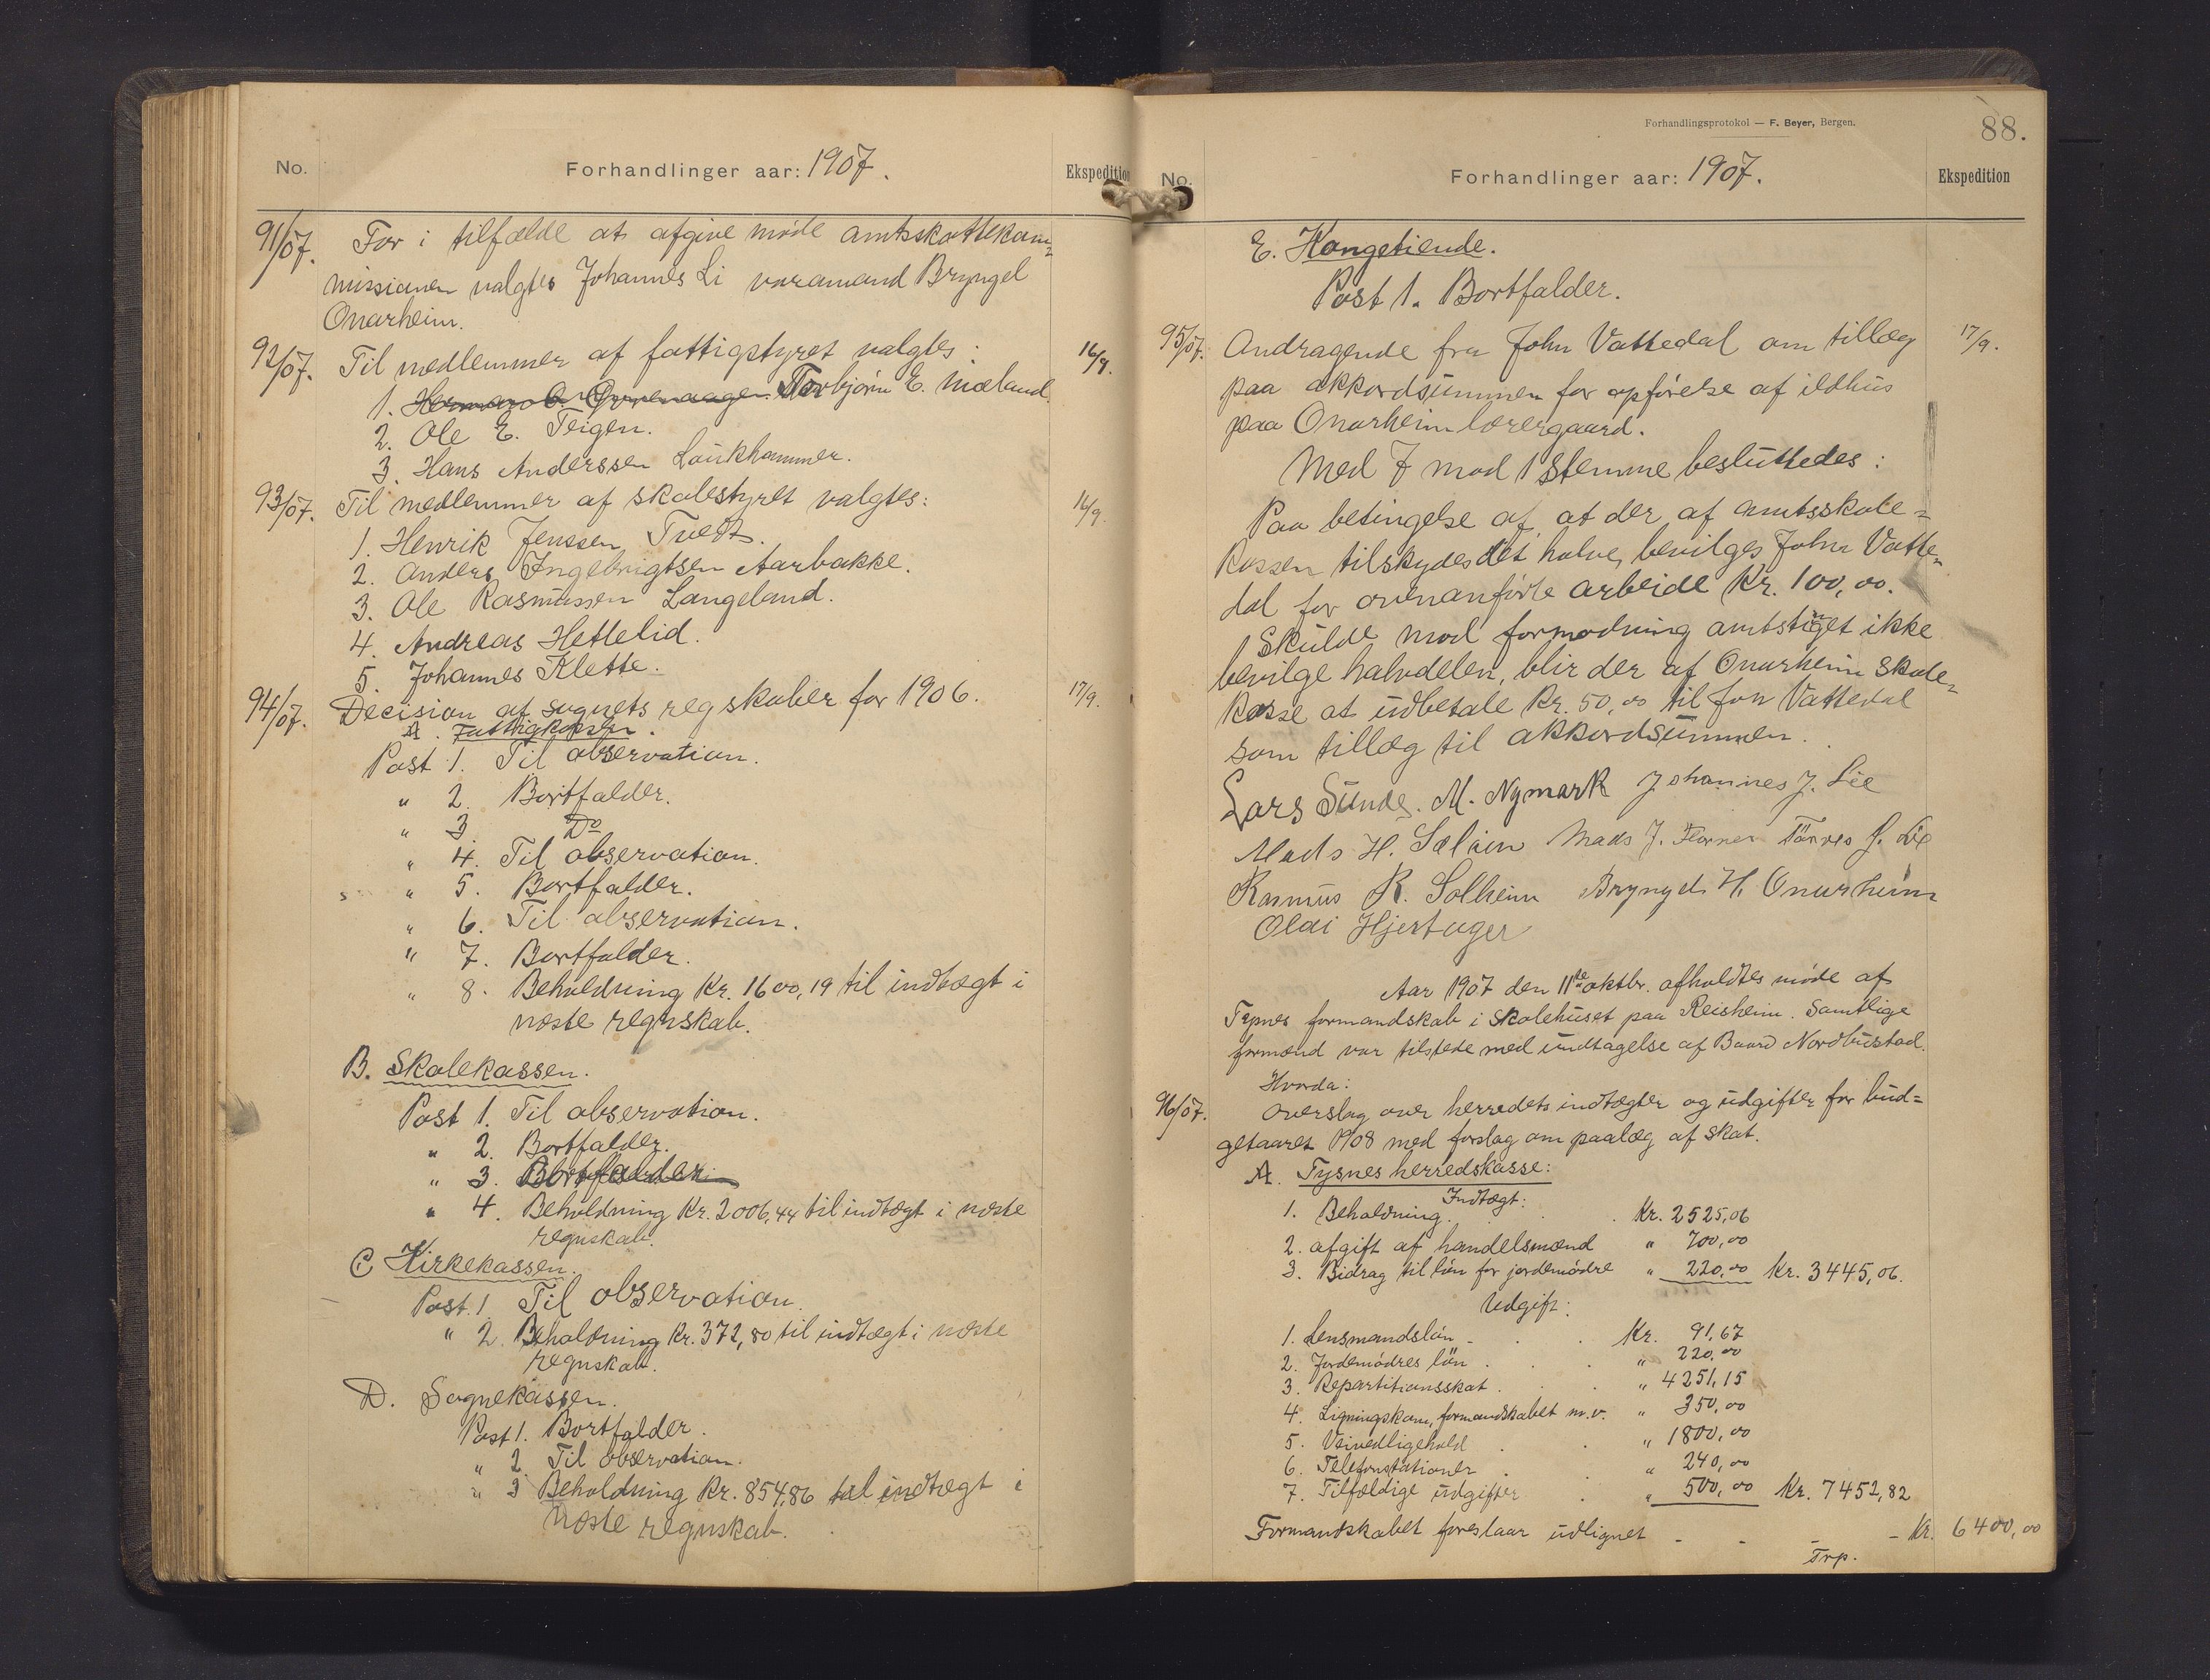 No.
Forhandlinger aar: 1907.
Ekspedition
91/07. For i tilfælde at afgive møde amtsskattekom-
missionen valgtes Johannes Li varamand Bryngel
Onarheim.
92/07. Til medlemmer af fattigstyret valgtes: 16/9.
1. Torbjörn E. Mæland.
2. Ole E. Teigen.
3. Hans Anderssen Laukhammer.
93/07. Til medlemmer af skolestyret valgtes: 16/9.
1. Henrik Jenssen Tvedt.
2. Anders Ingebrigtsen Aarbakke.
3. Ole Rasmussen Langeland.
4. Andreas Hettelid.
5. Johannes Klette.
94/07. Decision af sognets regskaber for 1906. 17/9.
A. Fattigkassen.
Post 1. Til observation.
" 2. Bortfalder.
" 3. Do
" 4. Til observation.
" 5. Bortfalder.
" 6. Til observation.
" 7. Bortfalder.
" 8. Beholdning Kr. 1600,19 til indtægt i
næste regnskab.
B. Skolekassen.
Post 1. Til observation.
" 2. Bortfalder.
" 3. Bortfalder.
" 4. Beholdning Kr. 2006,44 til indtægt i næste
regnskab.
C Kirkekassen.
Post. 1 Til observation.
" 2. Beholdning Kr. 372,80 til indtægt i næste
regnskab.
D. Sognekassen.
Post 1. Bortfalder.
" 2 Til observation.
" 3 Beholdning Kr. 854,86 til indtægt i
næste regnskab.
Forhandlingsprotokol — F. Beyer, Bergen.
88.
No.
Forhandlinger aar: 1907.
Ekspedition
E. Kongetiende.
Post 1. Bortfalder.
95/07. Andragende fra John Vattedal om tillæg 17/9.
paa akkordsummen for opførelse af ildhus
paa Onarheim lærergaard.
Med 7 mod 1 stemme besluttedes:
Paa betingelse af at der af amtsskole-
kassen tilskydes det halve, bevilges John Vatte-
dal for ovenanførte arbeide Kr. 100,00.
Skulde mod formodning amtstinget ikke
bevilge halvdelen, blir der af Onarheim skole-
kasse at udbetale Kr. 50,00 til Jon Vattedal
som tillæg til akkordsummen.
Lars Sunde. M. Nymark Johannes J. Lie
Mads H. Sæløen Mads J. Flornes Tørres J. Lie
Rasmus R. Solheim Bryngel H. Onarheim
Olai Hjertager
Aar 1907 den 11te oktbr. afholdtes møde af
Tysnes formandskab i skolehuset paa Reisheim. Samtlige
formænd var tilstede med undtagelse af Baard Nordbustad.
Hvorda:
96/07. Overslag over herredets indtægter og udgifter for bud=
getaaret 1908 med forslag om paalæg af skat.
A. Tysnes herredskasse:
Indtægt:
1. Beholdning. . . Kr. 2525,06
2. afgift af handelsmænd " 700,00
3. Bidrag til løn for jordemødre " 220,00 Kr. 3445,06.
Udgift:
1. Lensmandsløn - . . Kr. 91,67
2. Jordemødres løn . . " 220,00
3. Repartitionsskat . . " 4251,15
4. Ligningskom, formandskabet m.v. " 350,00
5. Veivedligehold . . " 1800,00
6. Telefonstationer . . " 240,00
7. Tilfældige udgifter . " 500,00 Kr. 7452,82
Formandskabet foreslaar udlignet - - - - Kr. 6400,00
Trp.